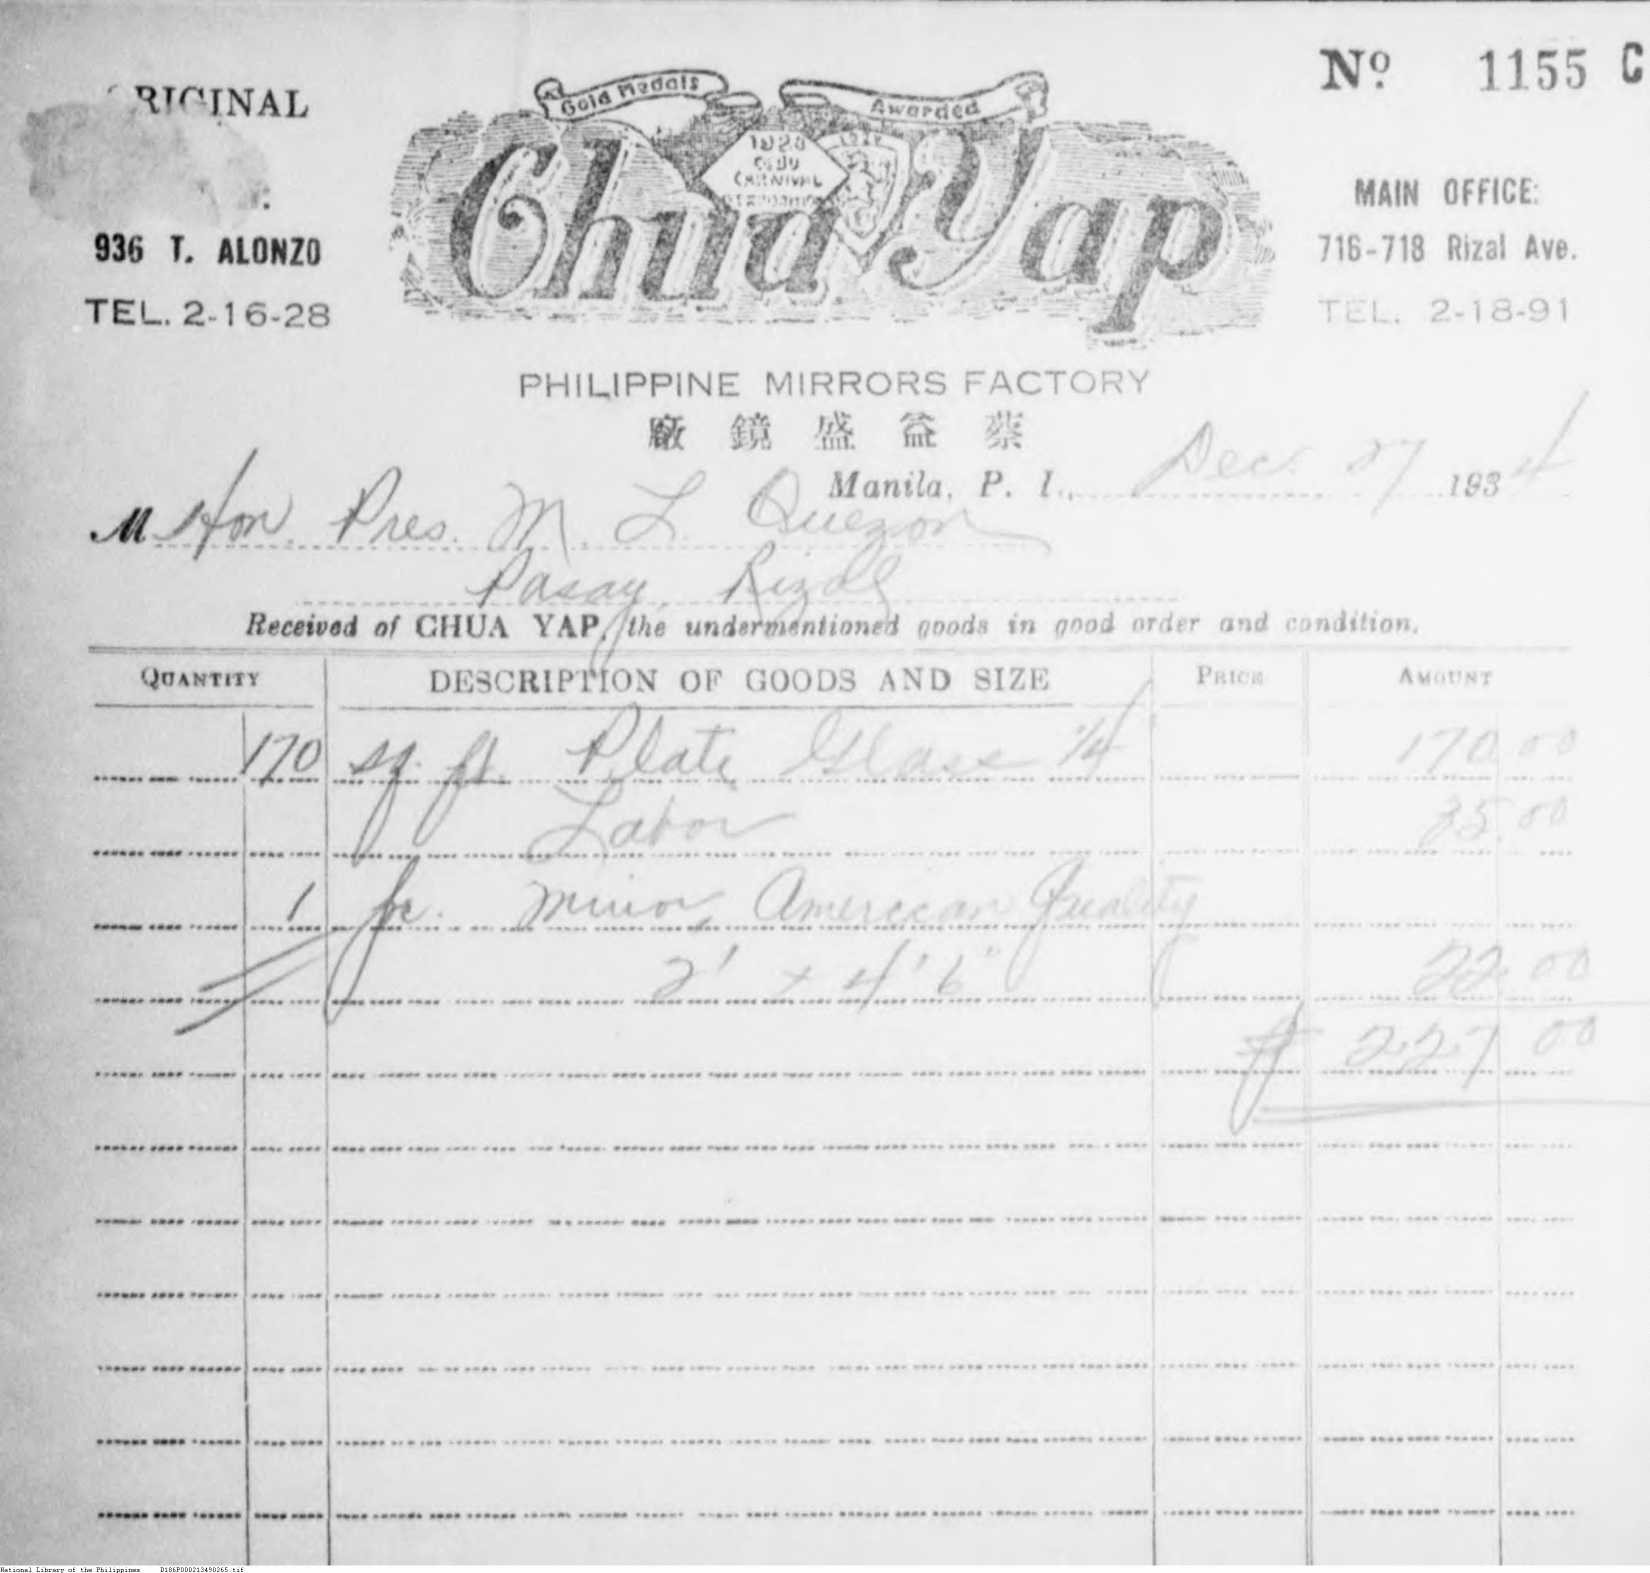 ORIGINAL
Nº 1155 C
Gold Medals Awarded
1928
CEBU
CARNIVAL
EXPOSITION
Chua Yap
936 T. ALONZO
TEL. 2-16-28
MAIN OFFICE:
716-718 Rizal Ave.
TEL. 2-18-91
PHILIPPINE MIRRORS FACTORY
廠鏡盛益蔡
Manila, P. I., Dec. 27 1934
M Hon. Pres. M. L. Quezon
Pasay, Rizal
Received of CHUA YAP, the undermentioned goods in good order and condition.
QUANTITY DESCRIPTION OF GOODS AND SIZE PRICE AMOUNT
170 sq. ft. Plate Glass 1/4 170.00
Labor 35.00
1 pc. Mirror, American Quality
2' x 4' 6" 22.00
₱ 227 00
National Library of the Philippines D186P000213490265.tif